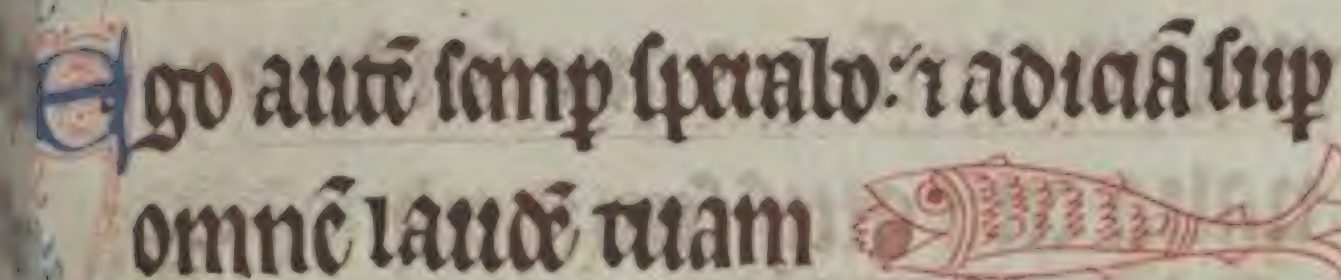 Ego autē semꝑ sperabo: ⁊ adiciā suꝑ
omnē laudē tuam